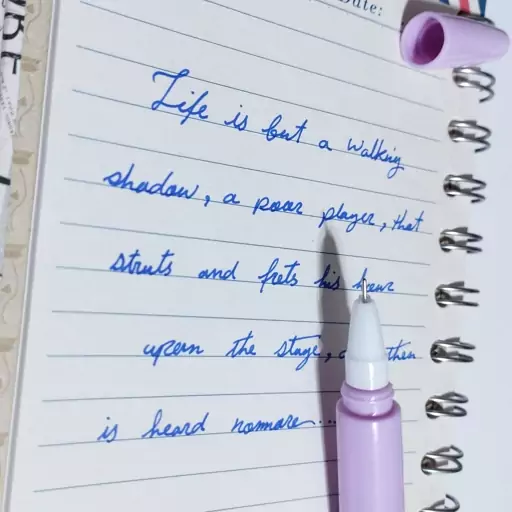 Date:
Life is but a walking
shadow, a poor player, that
struts and frets his hour
upon the stage, then
is heard nomore...